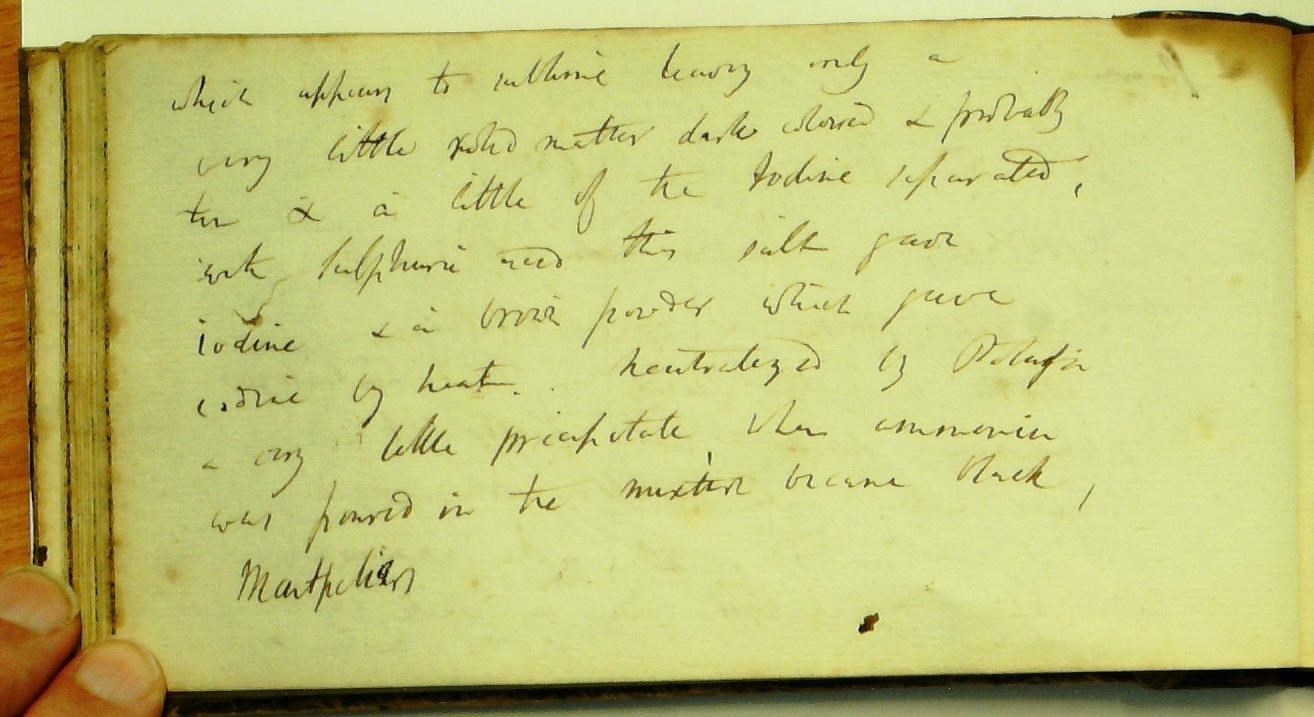 which appears to sublime leaving only a
very little solid matter dark colored & probably
tin & a little of the Iodine separated,
with Sulphuric acid this salt gave
iodine & a brown powder which gave
iodine by heat. neutralized by Potash
a very little precipitate when ammonia
was poured in the mixture became black,
Montpeliers